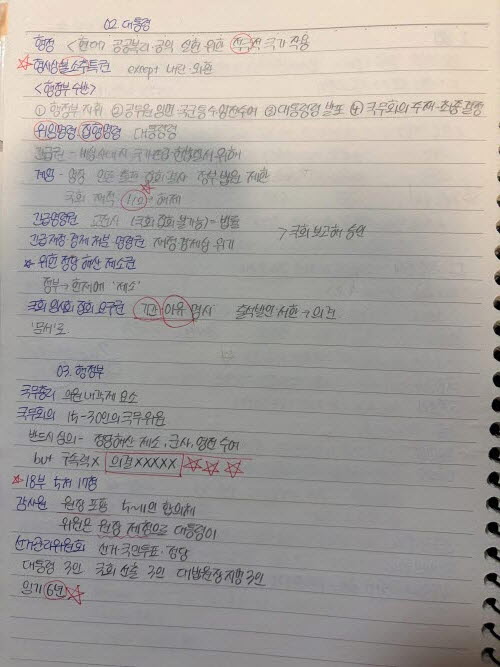 02 대통령
행정 <현재> 공공복리 공익 실현 위한 적극적 국가 작용
☆형사상 불소추특권 except 내란·외환
<행정부 수반>
① 행정부 지휘 ② 공무원 임면·국군통수·영전수여 ③ 대통령령 발포 ④ 국무회의 주재·최종결정
위임명령 집행명령 대통령령
긴급권 - 비상사태시 국가보전·헌법질서 위해
계엄 - 영장 언론 출판 집회 결사 정부 법원 제한
국회 재적 1/2 ☆ 해제
긴급명령권 교전시 (국회 집회 불가능) = 법률
긴급재정 경제 처분·명령권 재정경제상 위기 > 국회 보고해 승인
☆ 위헌 정당 해산 제소권
정부 → 헌재에 '제소'
국회 임시회 집회 요구권 기간 이유 명시 출석발언 서한 → 의견
'문서'로
03. 행정부
국무총리 의원내각제 요소
국무회의 15-30인의 국무위원
반드시 심의 - 정당해산 제소, 군사, 영전 수여
but 구속력X 의결XXXXX ☆☆☆
☆18부 5처 17청
감사원 원장 포함 5~11인 합의체
위원은 원장 제청으로 대통령이
선거관리위원회 선거·국민투표·정당
대통령 3인 국회 선출 3인 대법원장 지명 3인
임기 6년☆